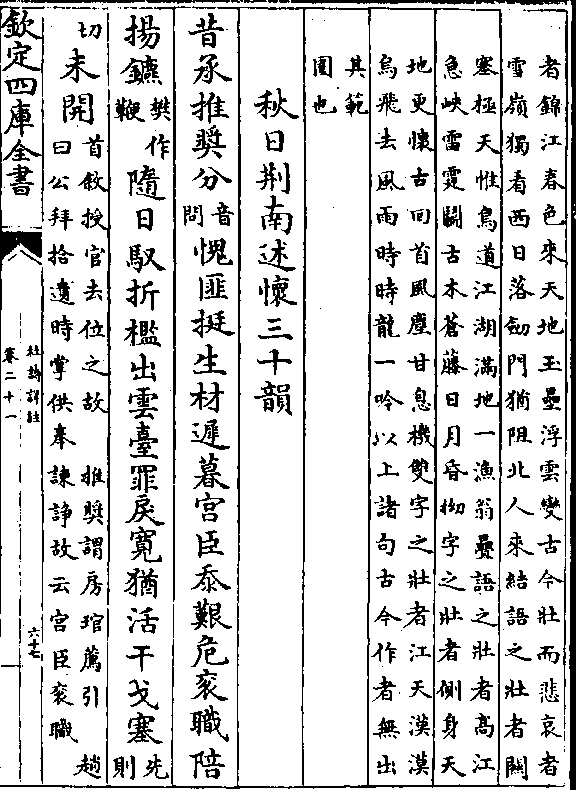 者錦江春色來天地玉壘浮雲變古今壯而悲哀者
雪嶺獨看西日落劒門猶阻北人來結語之壯者關
塞極天惟鳥道江湖滿地一漁翁疊語之壯者高江
急峽雷霆鬭古木蒼藤日月昏拗字之壯者側身天
地更懷古回首風塵甘息機雙字之壯者江天漠漠
鳥飛去風雨時時龍一吟以上諸句古今作者無出
其範
圍也
秋日荆南述懷三十韻
昔承推奬分音問愧匪挺生材遲暮宫臣忝艱危衮職陪
揚鑣樊作鞭隨日馭折檻出雲臺罪戾寬猶活干戈塞先則
切未開首敘授官去位之故 推奬謂房琯薦引 趙
曰公拜拾遺時掌供奉諫諍故云宫臣衮職
欽定四庫全書
杜詩詳註
卷二十一
六十七